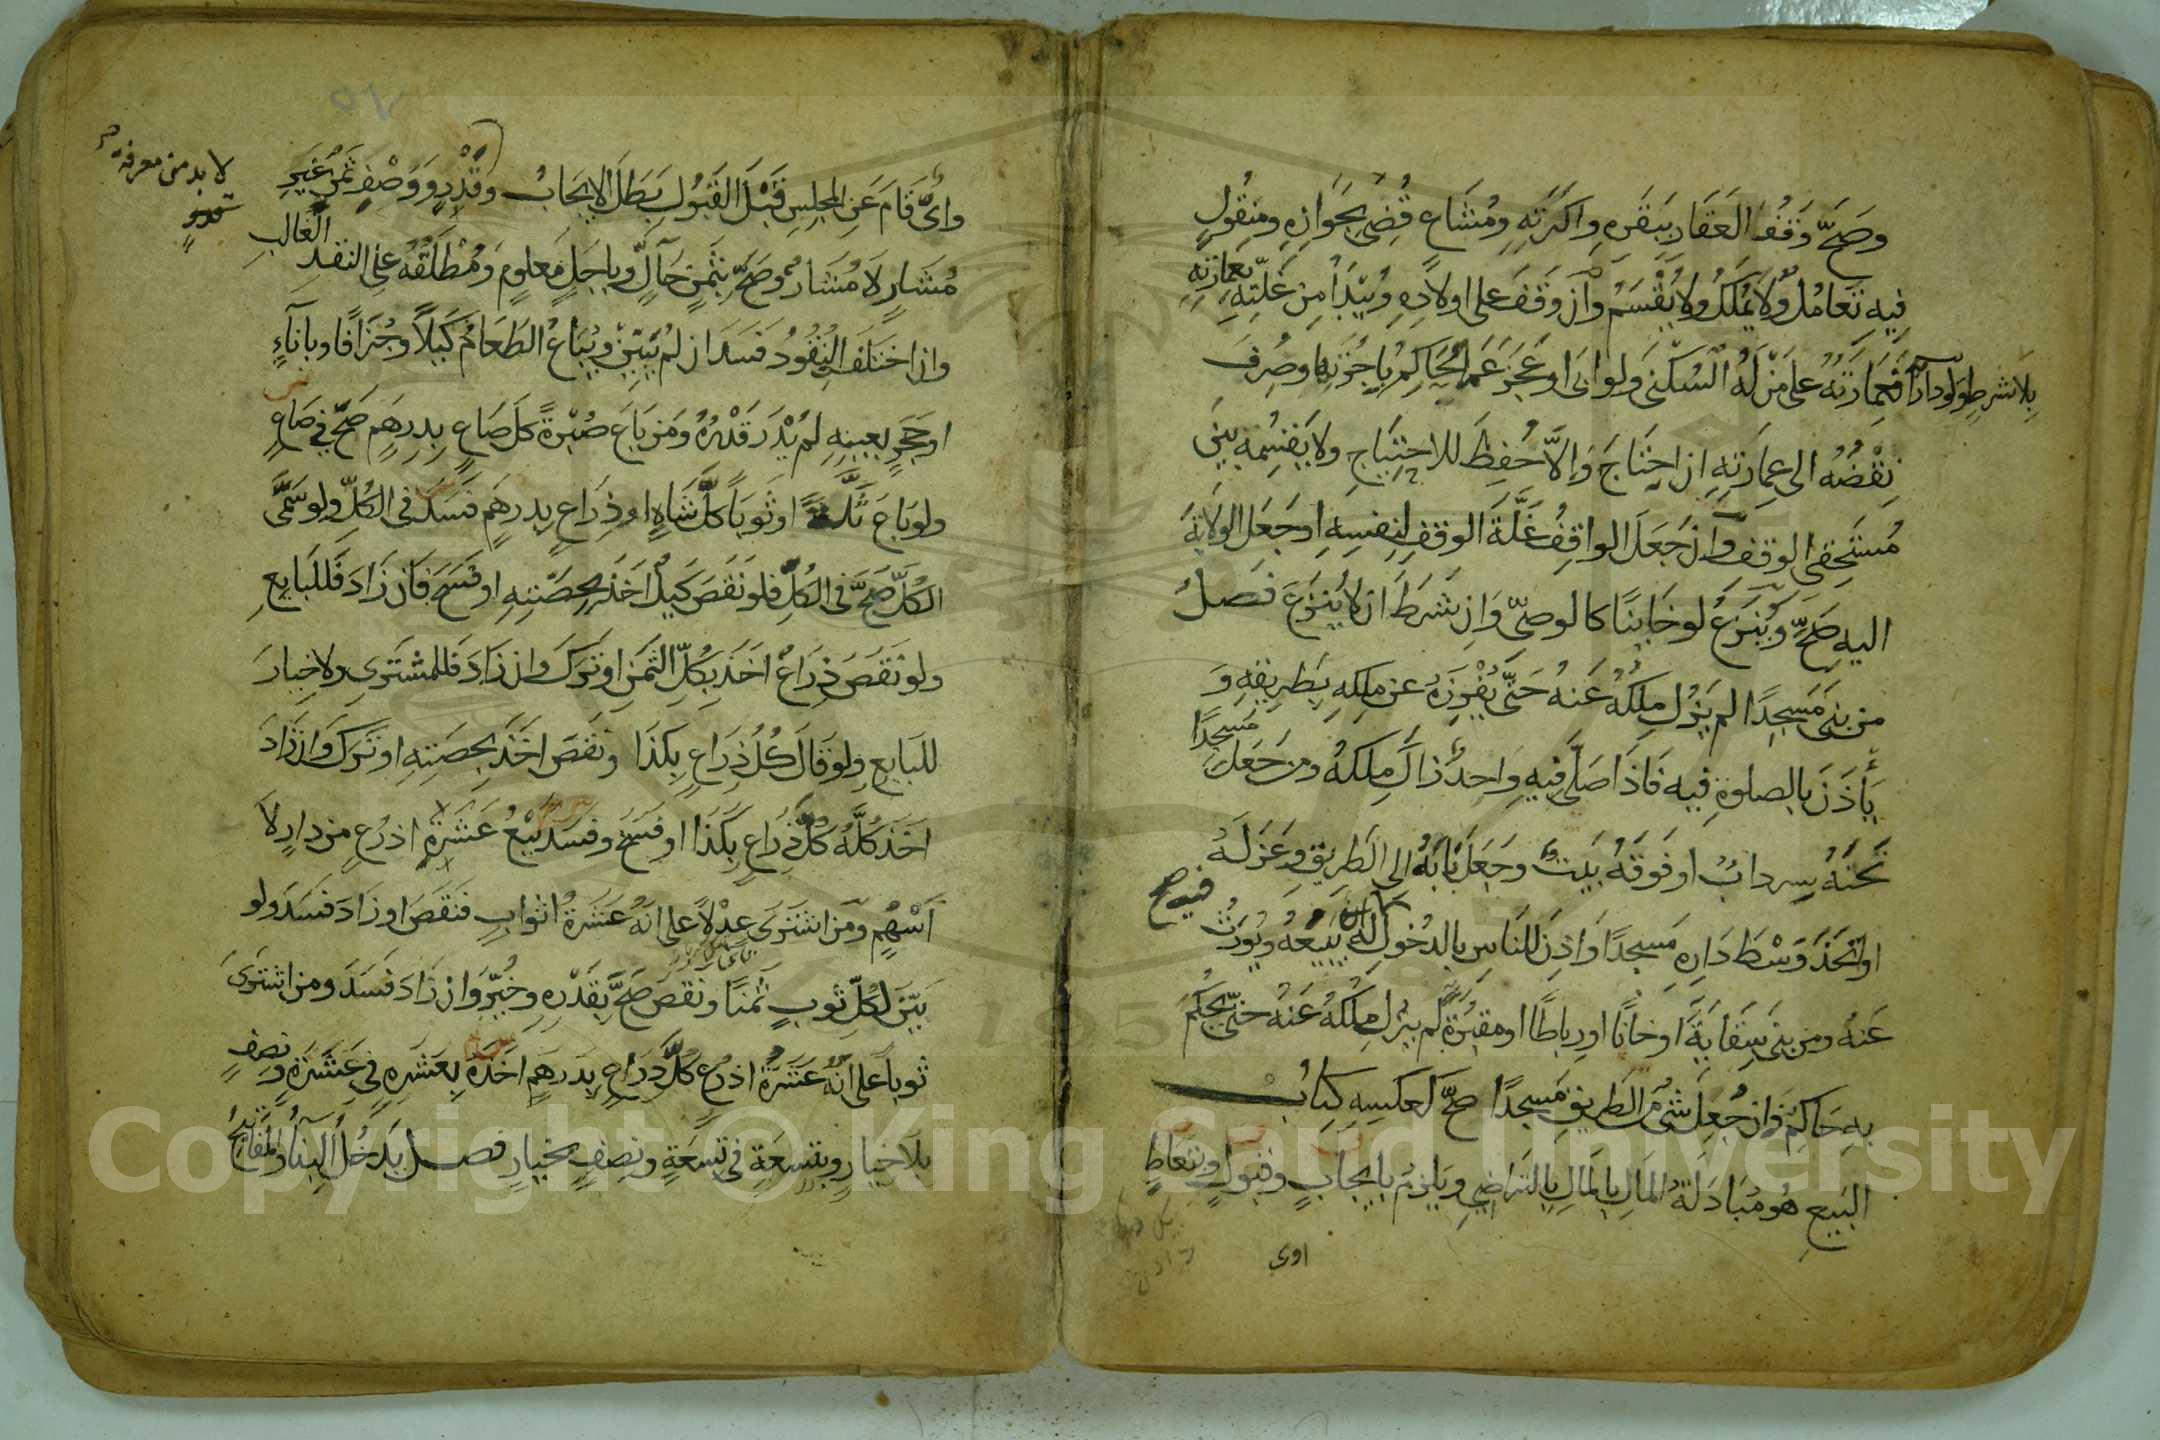 وَصَحَّ وَقفُ العَقَارِ بِبَقَرِهِ وَاَكَرَتِهِ وَمُشَاعٍ قُضِىَ بِجَوَازِهِ وَمَنقُولٍ
فِيهِ تَعَامُل وَلَا يُمَلَّكُ وَلَا يُقْسَمُ وَاِن وَقَفَ على اولَادِهِ وَيُبْدَأُ مِن غَلَّتِهِ بِعِمَارَتِهِ
بِلَا شرطٍ وَلَو دارًا فَعِمَارَتُهُ على مَنْ لَهُ السُكْنَى وَلَو ابَى او عَجَزَ عَمَرَ الحَاكِمُ بِاُجْرَتِهَا وصُرِفَ
نِقْضُهُ الى عِمَارَتِهِ ان احْتَاجَ وَاِلَّا حُفِظَ للاحتِيَاجِ ولا يَقسِمه بينَ
مُستَحِقِى الوقفِ وَاِن جَعَلَ الواقِفُ غَلَّةَ الوقفِ لِنفسِهِ او جَعَل الولايَةَ
اليه صَحَّ وَيُنزَعُ لو خَاينًا كالوصىّ وَاِن شَرَطَ ان لا يُنزَعَ فصلٌ
من بَنى مَسجِدًا لم يَزُل مِلكُهُ عَنهُ حَتّى يُفْرِزَهُ عن مِلكِهِ بِطَرِيقِهِ وَ
يَأذَنَ بالصلوةِ فيه فَاذَا صَلَّى فِيهِ وَاحدٌ زال مِلكهُ ومن جَعَلَ مَسجدًا
تَحتَهُ سِردابٌ او فَوقَهُ بَيتٌ وجَعَلَ بَابَهُ الى الطرِيقِ وعَزَلَهُ
او اتّخَذَ وَسْطَ دَارِهِ مَسجِدًا وَاذِنَ للنّاسِ بالدُخولِ فيه صح لَهُ بَيعُهُ وَيُورَثُ
عَنهُ ومن بَنى سِقَايَةً او خانًا او رِباطًا او مَقبَرةً لم يَزُل مِلكُهُ عَنهُ حتّى يَحكُمَ
بِهِ حَاكمٌ وَاِن جُعِلَ شئٌ من الطرِيقِ مَسجِدًا صحَّ كَعَكسِهِ كِتابُ
البَيعِ هُو مُبَادَلَةُ المَالِ بِالمَالِ بِالتَراضِى وَيَلزمُ بِايجَابٍ وقبولٍ وبتعاطٍ
واىٌّ قَامَ عَنِ المجلِسِ قَبْلَ القَبُولِ بَطَلَ الايجَابُ وَقَدْرٍ وَوَصْفِ ثَمَنٍ غَيرِ
لا بد من معرفة
مُشَارٍ لَا مُشَارٍ وصَحَّ بِثَمَنٍ حَالٍّ وَبِاَجَلٍ مَعلومٍ وَمُطْلَقُهُ على النقدِ الغَالِبِ
وان اختَلَفَ النُقُودُ فَسَدَ ان لم يُبَيّن وَيُبَاعُ الطَعَامُ كَيلًا وجُزَافًا وبِاِنَاءٍ
او حَجَرٍ بِعَينِهِ لم يُدْرَ قَدْرُهُ ومَن بَاعَ صُبْرةً كلَّ صَاعٍ بِدِرهَمٍ صَحَّ فى صَاعٍ
ولو بَاعَ ثَلَّةً او ثَوبًا كلَّ شَاةٍ او ذِرَاعٍ بِدِرهَمٍ فَسَدَ فى الكُلِّ ولو سَمَّى
الكُلَّ صَحَّ فى الكُلِّ فلو نَقَصَ كَيلٌ اَخَذَ بِحِصّتِهِ او فَسَخَ فان زَادَ فَللبَايِعِ
ولو نَقَصَ ذِرَاعٌ اَخَذَ بِكُلِّ الثَمَنِ او تَرَكَ وان زَادَ فللمشترِى ولا خِيارَ
للبَايِعِ ولو قَالَ كُلُّ ذِرَاعٍ بِكَذَا ونَقَصَ اخَذَ بِحِصَتِهِ او تَرَكَ وان زَادَ
اَخَذَ كُلَّهُ كُلَّ ذِرَاعٍ بِكَذَا او فَسَخَ وفَسَدَ بَيْعُ عَشَرَةِ اذرُعٍ من دارٍ لَا
اَسْهُمٍ وَمَن اشتَرَى عِدْلًا على انّهُ عَشَرَةُ اثوابٍ فَنَقَصَ او زَادَ فسَدَ ولو
بَيّنَ لِكُلِّ ثوبٍ ثَمنًا ونَقَصَ صَحَّ بِقَدْرِهِ وخُيِّرَ وَان زَادَ فَسَدَ ومن اشترى
ثوبا على انّهُ عَشَرَةُ اذرُعٍ كُلَّ ذِرَاعٍ بِدِرهَمٍ اخَذَهُ بِعَشَرةٍ فى عَشَرَةٍ ونِصفٍ
بِلَا خيارٍ وبتِسعَةٍ فى تِسعَةٍ ونِصفٍ بخيارٍ فصل يَدخُلُ البِنَاءُ والمَفَاتِيحُ
Copyright © King Saud University